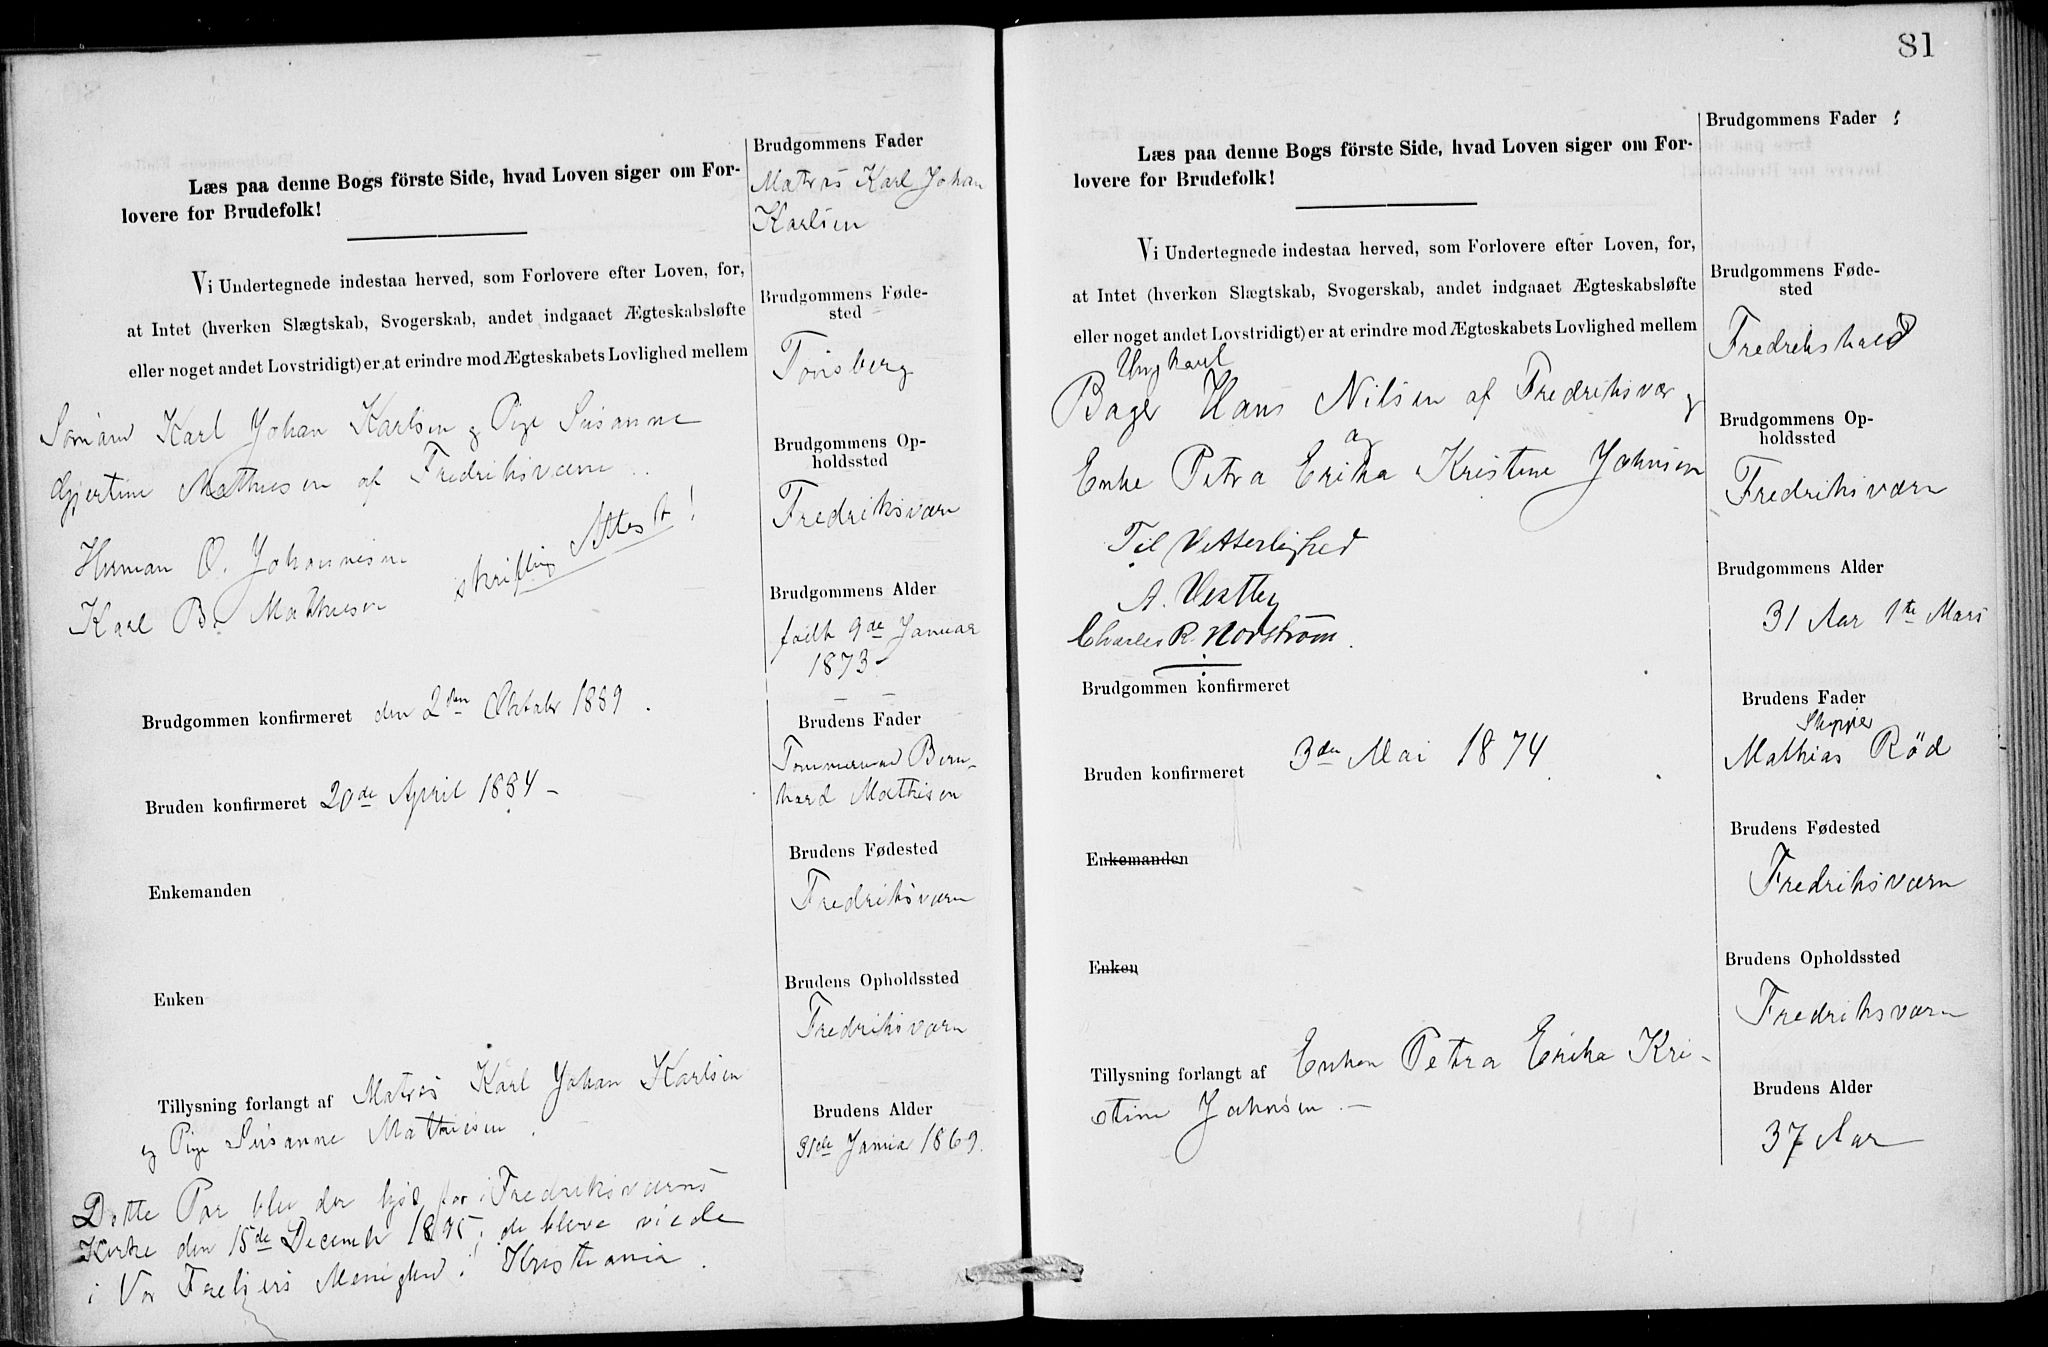 Læs paa denne Bogs förste Side, hvad Loven siger om For-
lovere for Brudefolk!
Vi Undertegnede indestaa herved, som Forlovere efter Loven, for,
at Intet (hverken Slægtskab, Svogerskab, andet indgaaet Ægteskabsløfte
eller noget andet Lovstridigt) er at erindre mod Ægteskabets Lovlighed mellem
Sømand Karl Johan Karlsen og Pige Susanne
Gjertine Mathiesen af Fredriksværn
Herman O. Johannesen
Karl B. Mathiesen
skriftlig Attest!
Brudgommen konfirmeret den 2den Oktober 1889.
Bruden konfirmeret 20de April 1884 –
Enkemanden
Enken
Tillysning forlangt af Matros Karl Johan Karlsen
og Pige Susanne Mathiesen.
Dette Par blev der lyst for i Fredriksværns
Kirke den 15de December 1895; de bleve viede
i Vor Frelsers Menighed! Kristiania.
Brudgommens Fader
Matros Karl Johan
Karlsen
Brudgommens Føde-
sted
Tønsberg
Brudgommens Op-
holdssted
Fredriksværn
Brudgommens Alder
født 9de Januar
1873 –
Brudens Fader
Tømmermand Bern-
hard Mathisen
Brudens Fødested
Fredriksværn
Brudens Opholdssted
Fredriksværn
Brudens Alder
31de Januar 1869.
81
Læs paa denne Bogs förste Side, hvad Loven siger om For-
lovere for Brudefolk!
Vi Undertegnede indestaa herved, som Forlovere efter Loven, for,
at Intet (hverken Slægtskab, Svogerskab, andet indgaaet Ægteskabsløfte
eller noget andet Lovstridigt) er at erindre mod Ægteskabets Lovlighed mellem
Ungkarl
Bager Hans Nilsen af Fredriksværn og
Enke Petra Erika Kristine Johnsen
Til Vitterlighed
A. Vestby
Charles R. Nordstrøm.
Brudgommen konfirmeret
Bruden konfirmeret 3die Mai 1874.
Enkemanden
Enken
Tillysning forlangt af Enken Petra Erika Kri-
stine Johnsen. –
Brudgommens Fader
Brudgommens Føde-
sted
Fredrikshald
Brudgommens Op-
holdssted
Fredriksværn
Brudgommens Alder
31 Aar 1ste Mars
Brudens Fader
Skipper
Mathias Rød
Brudens Fødested
Fredriksværn
Brudens Opholdssted
Fredriksværn
Brudens Alder
37 Aar